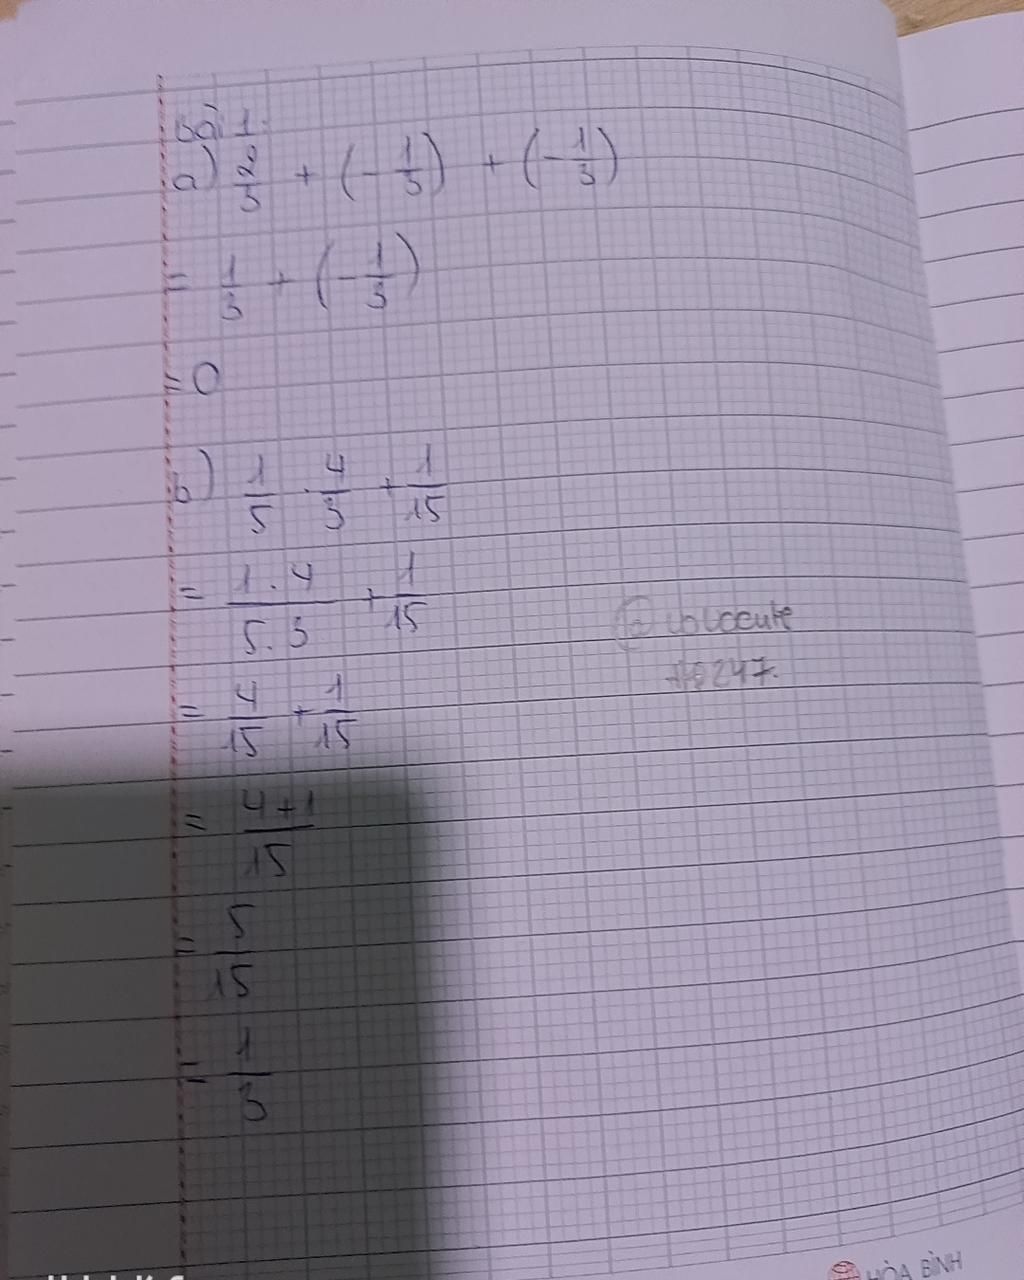 Bài 1.
a) 2/3 + (-1/3) + (-1/3)
= 1/3 + (-1/3)
= 0
b) 1/5 . 4/3 + 1/15
= 1.4/5.3 + 1/15
= 4/15 + 1/15
= 4+1/15
= 5/15
= 1/3
HÒA BÌNH